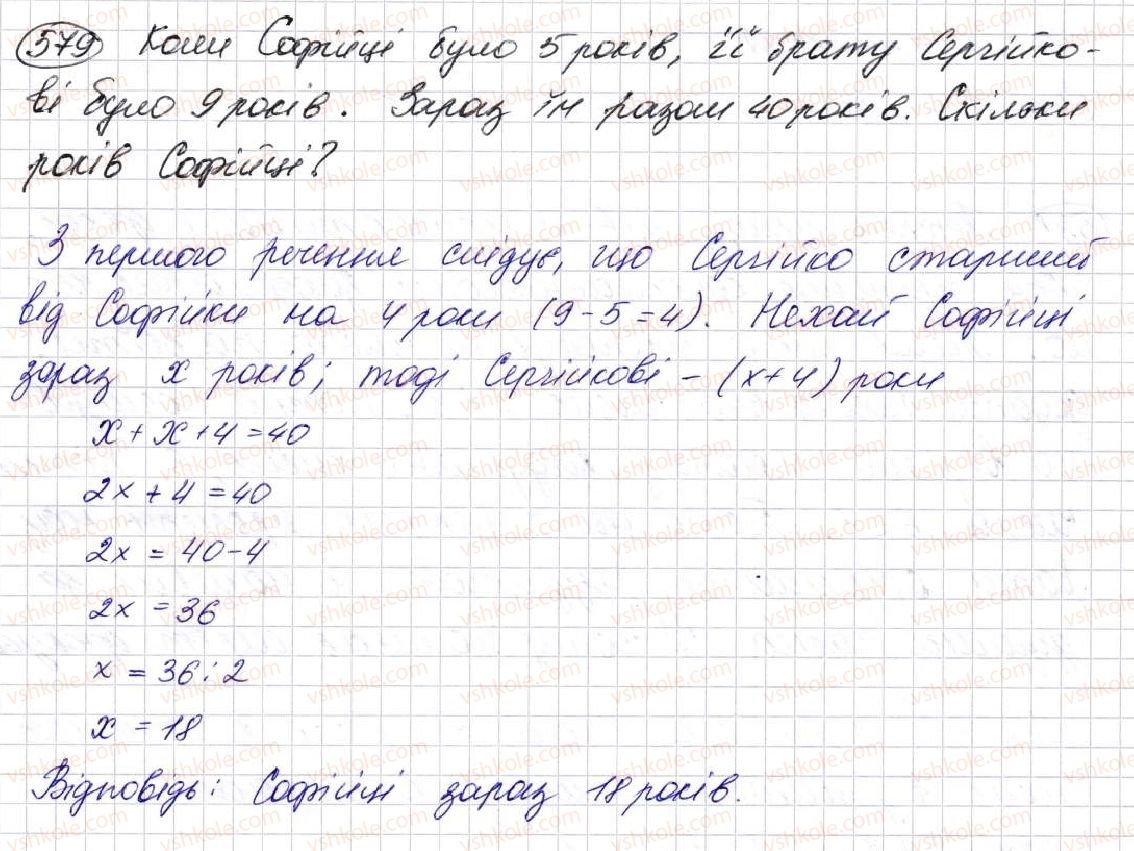 579 Коли Софійці було 5 років, її брату Сергійко-
ві було 9 років. Зараз їм разом 40 років. Скільки
років Софійці?
З першого речення слідує, що Сергійко старший
від Софійки на 4 роки (9-5=4). Нехай Софійці
зараз x років; тоді Сергійкові - (x+4) роки
x + x + 4 = 40
2x + 4 = 40
2x = 40-4
2x = 36
x = 36:2
x = 18
Відповідь: Софійці зараз 18 років.